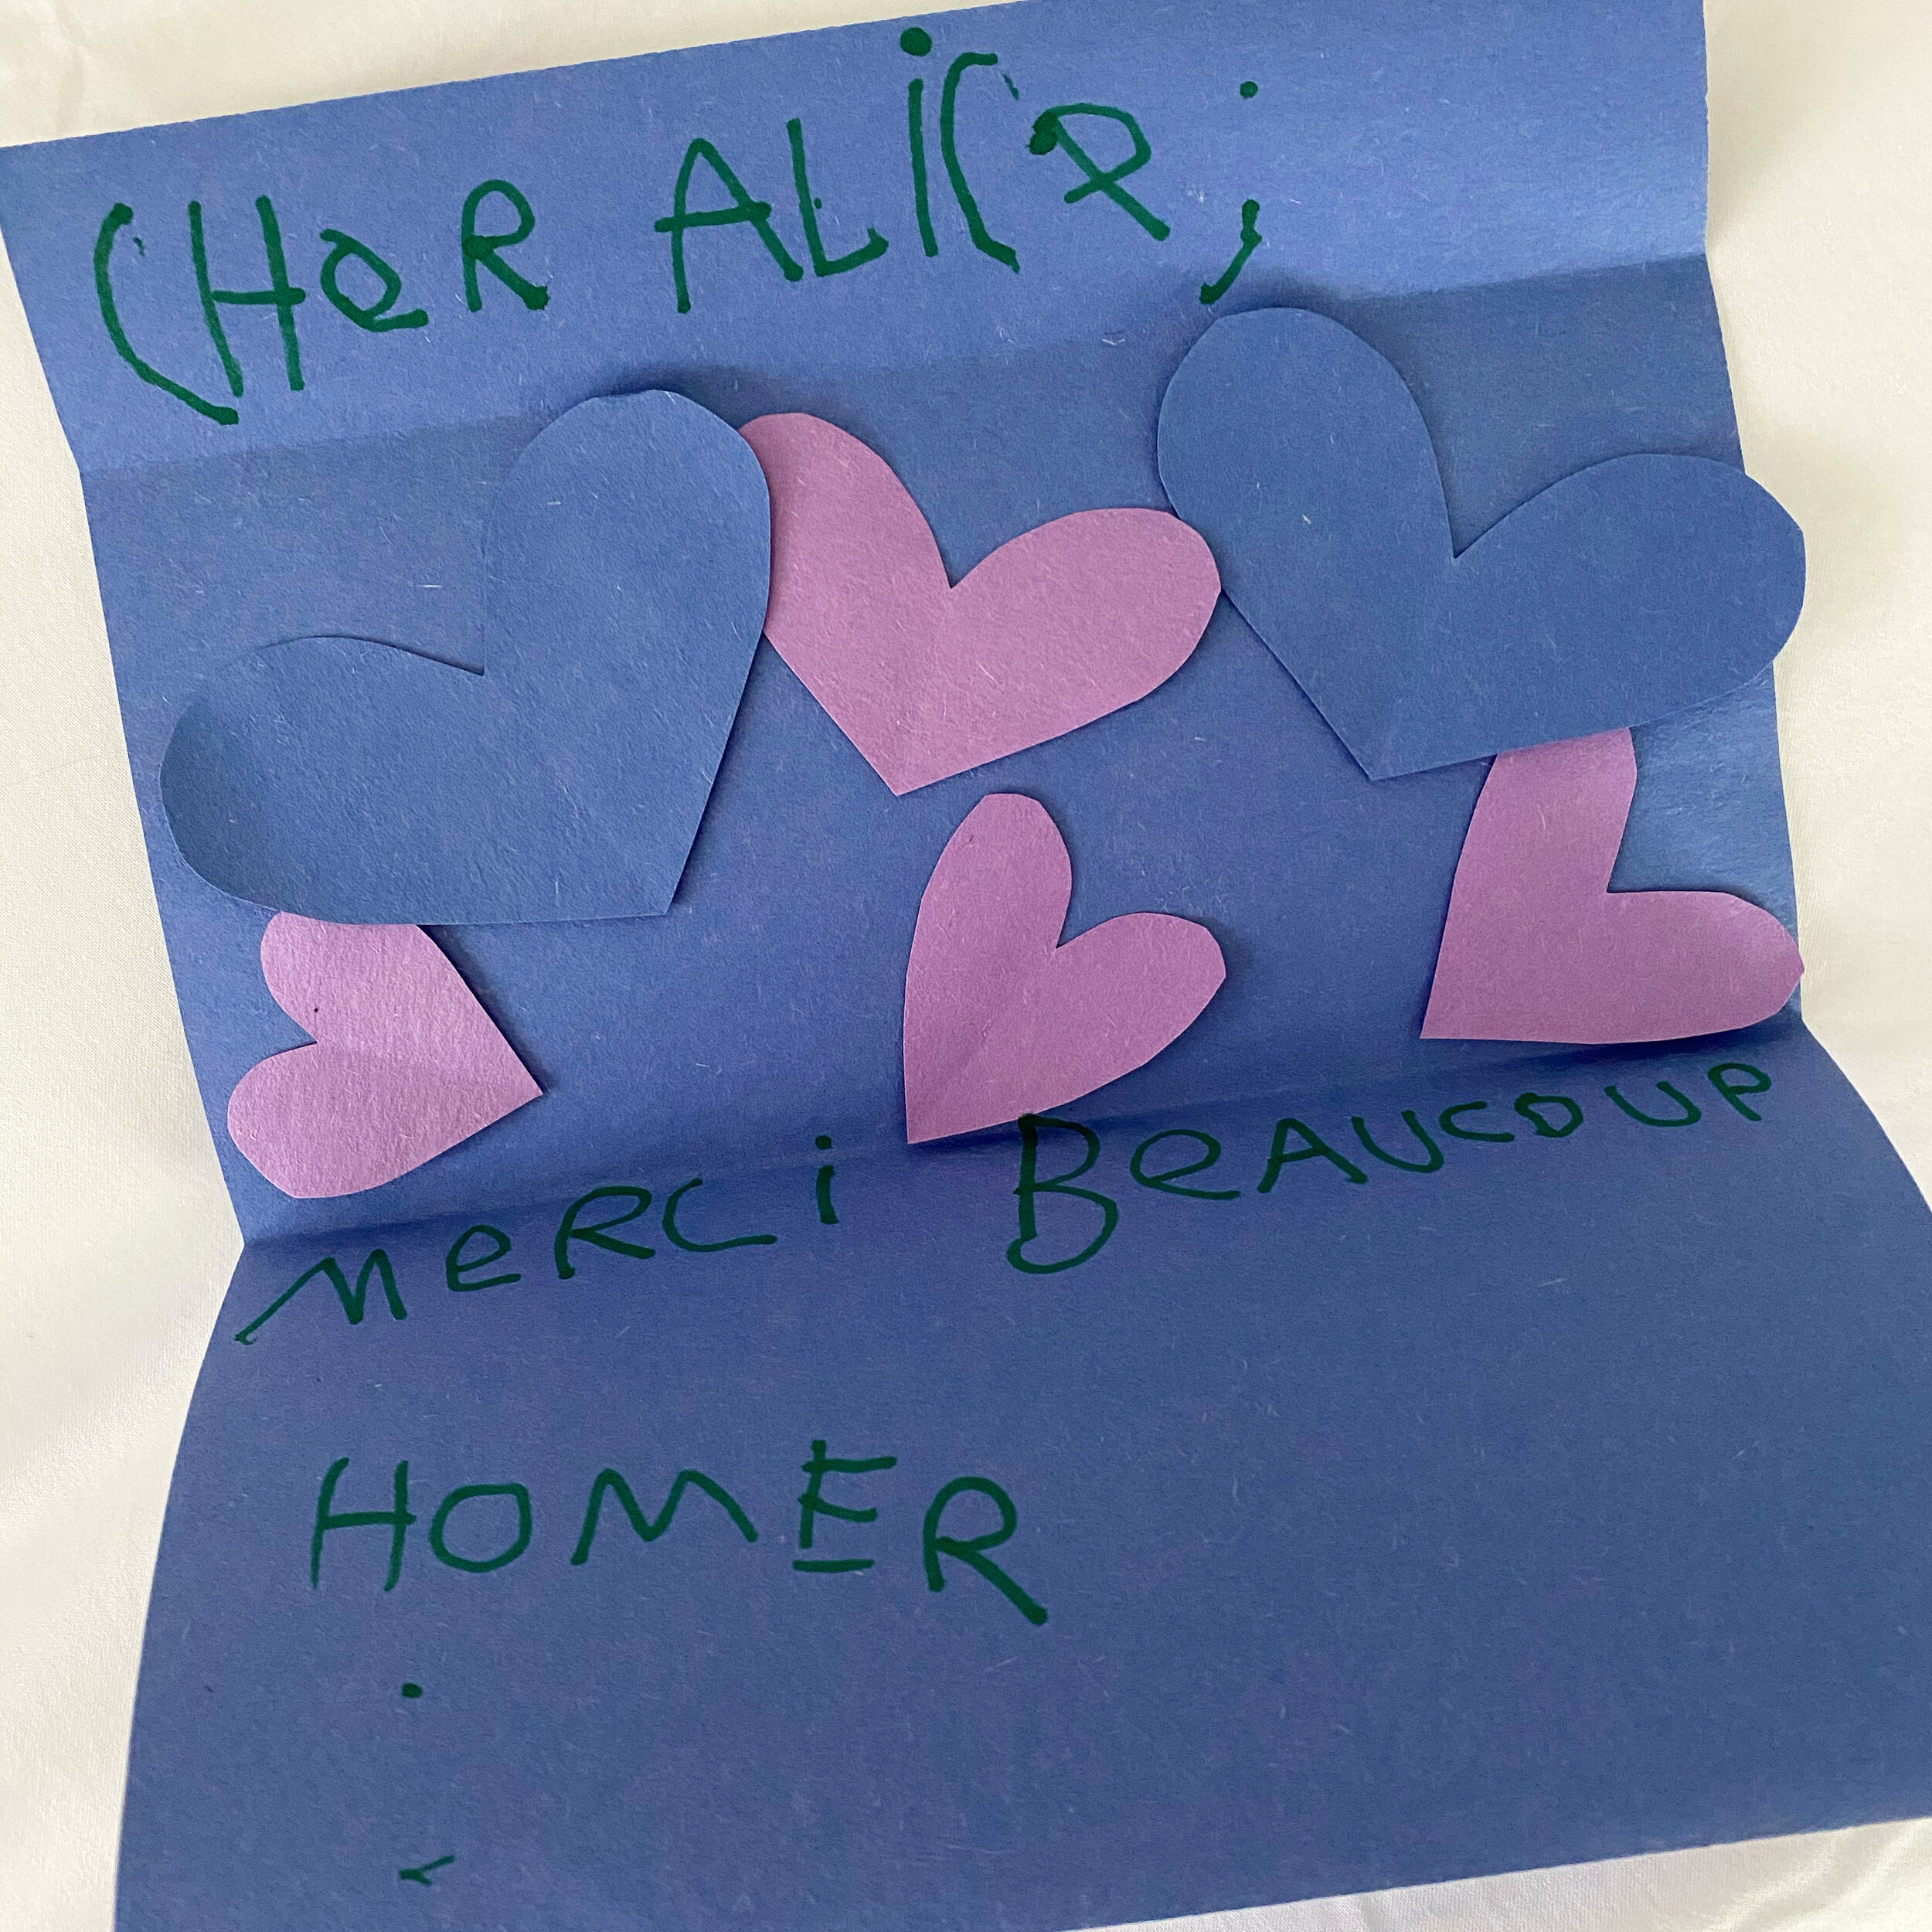 CHeR ALiCe;
MeRCi BeAUCOUP
HOMER